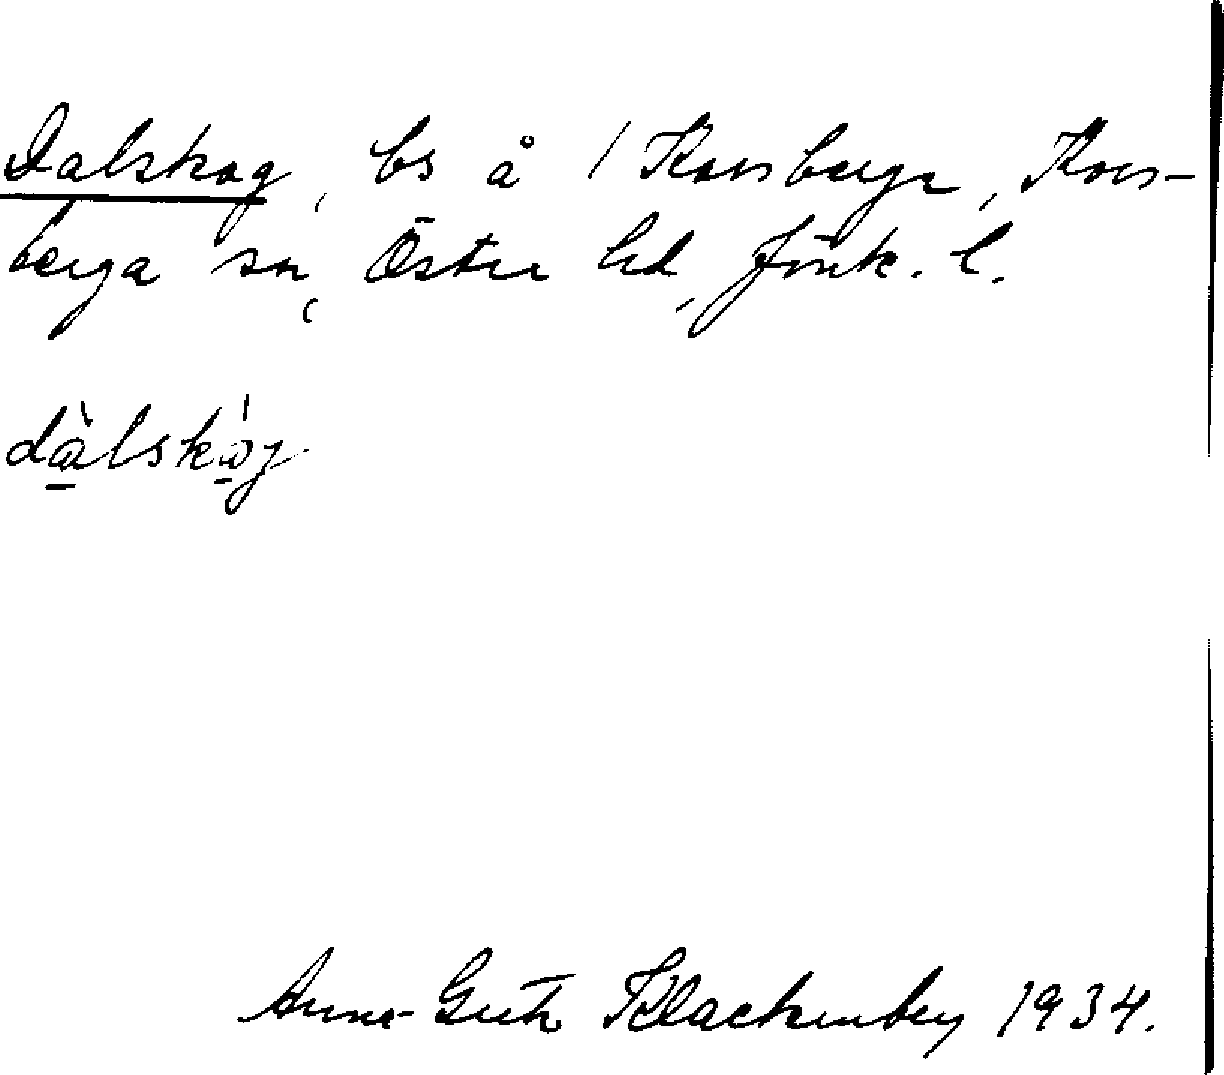 Dalskog, bs å / Korsberga, Kors-
berga sn, Östra hd, Jönk. l.
dàlskòg
Anna-Greta Klackenberg 1934.